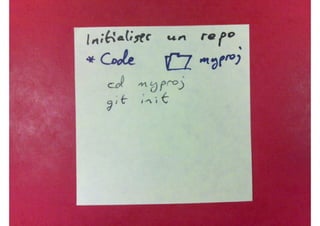 Initialiser un repo
* Code myproj
cd myproj
git init